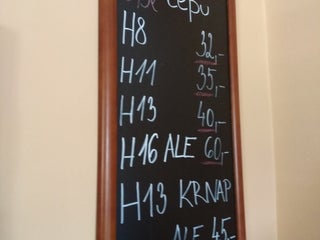 čepu
H8 32,-
H11 35,-
H13 40,-
H16 ALE 60,-
H13 KRNAP
ALE 45,-